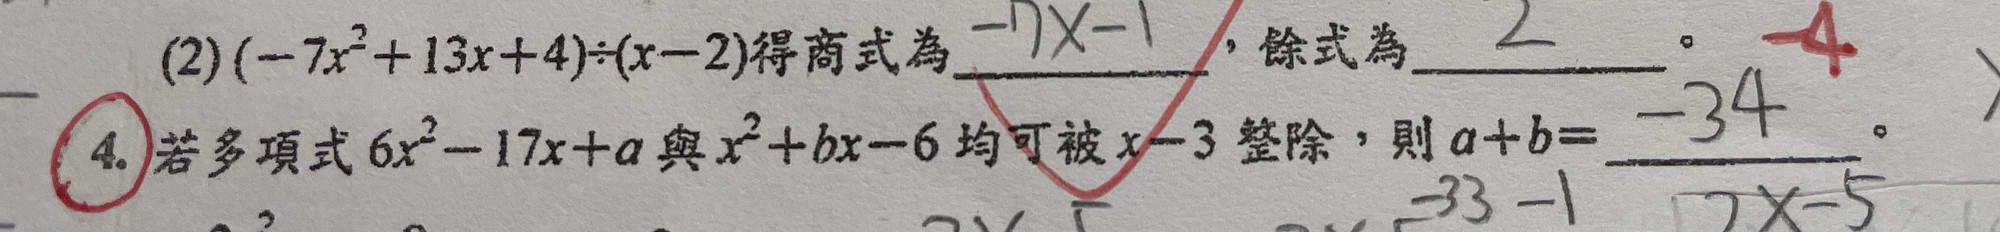 (2) (−7x²+13x+4)÷(x−2)得商式為 -7x-1 ，餘式為 2 。 -4
4. 若多項式 6x²−17x+a 與 x²+bx−6 均可被 x−3 整除，則 a+b= -34 。
-33 -1 7x-5